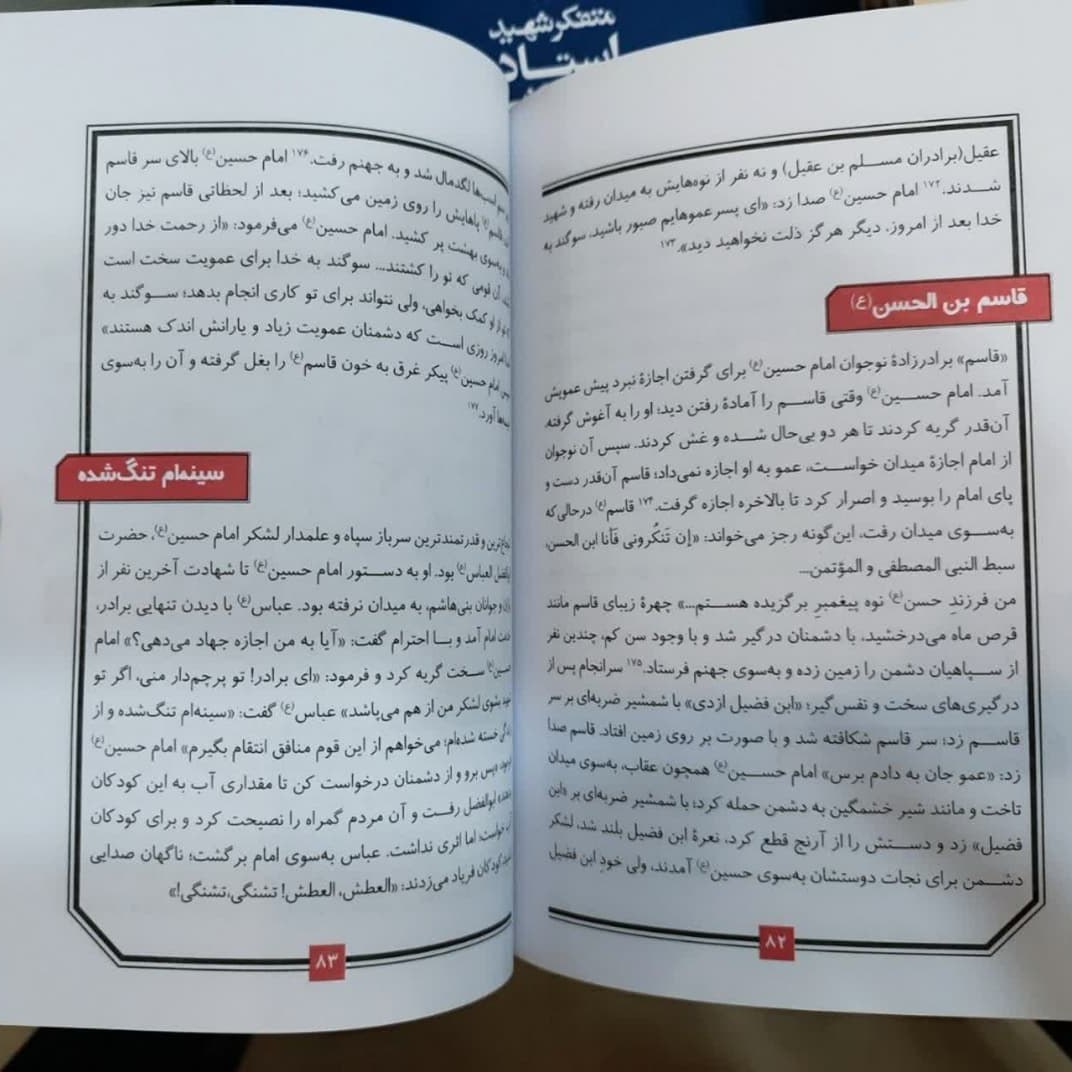 متفکر شهید
استاد
عقیل(برادران مسلم بن عقیل) و نه نفر از نوه‌هایش به میدان رفته و شهید
شدند.۱۷۲ امام حسین(ع) صدا زد: «ای پسرعموهایم صبور باشید، سوگند به
خدا بعد از امروز، دیگر هرگز ذلت نخواهید دید».۱۷۳
قاسم بن الحسن(ع)
«قاسم» برادرزادهٔ نوجوان امام حسین(ع) برای گرفتن اجازهٔ نبرد پیش عمویش
آمد. امام حسین(ع) وقتی قاسم را آمادهٔ رفتن دید؛ او را به آغوش گرفته،
آن‌قدر گریه کردند تا هر دو بی‌حال شده و غش کردند. سپس آن نوجوان
از امام اجازهٔ میدان خواست، عمو به او اجازه نمی‌داد؛ قاسم آن‌قدر دست و
پای امام را بوسید و اصرار کرد تا بالاخره اجازه گرفت.۱۷۴ قاسم(ع) درحالی‌که
به‌سوی میدان رفت، این‌گونه رجز می‌خواند: «إن تَنکُرونی فَأنا ابن الحسن،
سبط النبی المصطفی و المؤتمن...
من فرزندِ حسن(ع) نوه پیغمبرِ برگزیده هستم...» چهرهٔ زیبای قاسم مانند
قرص ماه می‌درخشید، با دشمنان درگیر شد و با وجود سن کم، چندین نفر
از سپاهیان دشمن را زمین زده و به‌سوی جهنم فرستاد.۱۷۵ سرانجام پس از
درگیری‌های سخت و نفس‌گیر؛ «ابن فضیل ازدی» با شمشیر ضربه‌ای بر سر
قاسم زد؛ سر قاسم شکافته شد و با صورت بر روی زمین افتاد. قاسم صدا
زد: «عمو جان به دادم برس» امام حسین(ع) همچون عقاب، به‌سوی میدان
تاخت و مانند شیر خشمگین به دشمن حمله کرد؛ با شمشیر ضربه‌ای بر «ابن
فضیل» زد و دستش را از آرنج قطع کرد، نعرهٔ ابن فضیل بلند شد، لشکر
دشمن برای نجات دوستشان به‌سوی حسین(ع) آمدند، ولی خودِ ابن فضیل
۸۲
اسب‌ها لگدمال شد و به جهنم رفت.۱۷۶ امام حسین(ع) بالای سر قاسم
قاسم(ع) پاهایش را روی زمین می‌کشید؛ بعد از لحظاتی قاسم نیز جان
و به‌سوی بهشت پر کشید. امام حسین(ع) می‌فرمود: «از رحمت خدا دور
آن قومی که تو را کشتند... سوگند به خدا برای عمویت سخت است
از او کمک بخواهی، ولی نتواند برای تو کاری انجام بدهد؛ سوگند به
امروز روزی است که دشمنان عمویت زیاد و یارانش اندک هستند»
امام حسین(ع) پیکر غرق به خون قاسم(ع) را بغل گرفته و آن را به‌سوی
آورد.۱۷۷
سینه‌ام تنگ‌شده
و قدرتمندترین سرباز سپاه و علمدار لشکر امام حسین(ع)، حضرت
العباس(ع) بود. او به دستور امام حسین(ع) تا شهادت آخرین نفر از
و جوانان بنی‌هاشم، به میدان نرفته بود. عباس(ع) با دیدن تنهایی برادر،
امام آمد و با احترام گفت: «آیا به من اجازه جهاد می‌دهی؟» امام
سخت گریه کرد و فرمود: «ای برادر! تو پرچم‌دار منی، اگر تو
بشوی لشکر من از هم می‌پاشد» عباس(ع) گفت: «سینه‌ام تنگ‌شده و از
خسته شده‌ام؛ می‌خواهم از این قوم منافق انتقام بگیرم» امام حسین(ع)
برو و از دشمنان درخواست کن تا مقداری آب به این کودکان
ابوالفضل رفت و آن مردم گمراه را نصیحت کرد و برای کودکان
خواست، اما اثری نداشت. عباس به‌سوی امام برگشت؛ ناگهان صدایی
کودکان فریاد می‌زدند: «العطش، العطش! تشنگی،تشنگی!»
۸۳